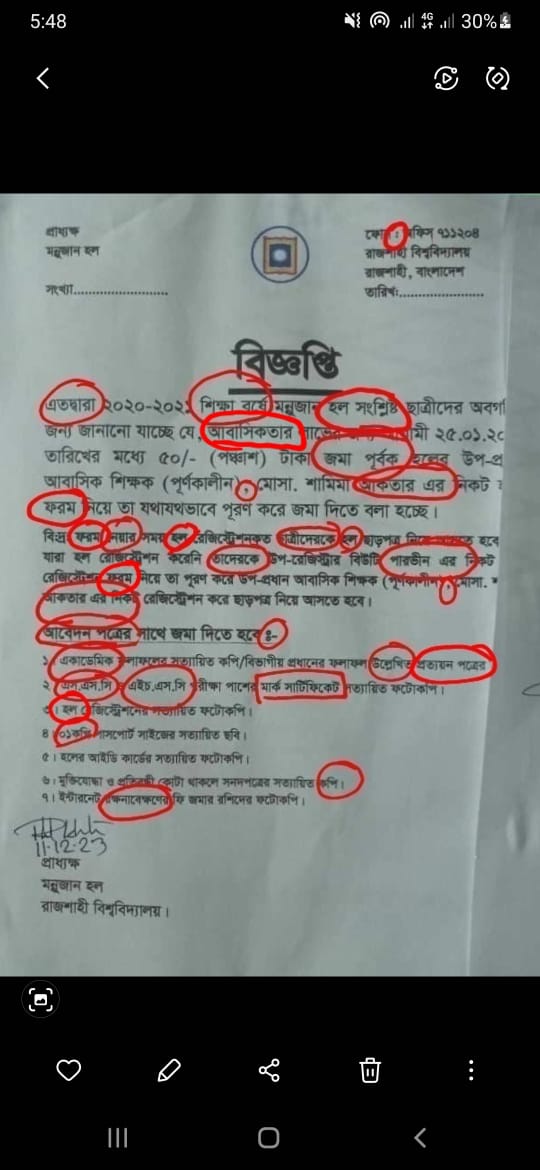 5:48
4G
30%
প্রাধ্যক্ষ
মন্নুজান হল
ফোন : অফিস ৭১১২০৪
রাজশাহী বিশ্ববিদ্যালয়
রাজশাহী, বাংলাদেশ
সংখ্যা
তারিখঃ
বিজ্ঞপ্তি
এতদ্বারা ২০২০-২০২১ শিক্ষা বর্ষে মন্নুজান হল সংশ্লিষ্ট ছাত্রীদের অবগ
জন্য জানানো যাচ্ছে যে, আবাসিকতার ২৫.০১.২০
তারিখের মধ্যে ৫০/- (পঞ্চাশ) টাকা জমা পূর্বক হলের উপ-প্র
আবাসিক শিক্ষক (পূর্ণকালীন), মোসা. শামিমা আকতার এর নিকট
ফরম নিয়ে তা যথাযথভাবে পূরণ করে জমা দিতে বলা হচ্ছে।
বিঃদ্রঃ ফরম নেয়ার সময় হল রেজিস্ট্রেশনকৃত ছাত্রীদেরকে হল ছাড়পত্র হবে
যারা হল রেজিস্ট্রেশন করেনি তাদেরকে উপ-রেজিস্ট্রার বিউটি পারভীন এর নিকট
রেজিস্ট্রেশন ফরম নিয়ে তা পূরণ করে উপ-প্রধান আবাসিক শিক্ষক (পূর্ণকালীন), মোসা.
আকতার এর নিকট রেজিস্ট্রেশন করে ছাড়পত্র নিয়ে আসতে হবে।
আবেদন পত্রের সাথে জমা দিতে হবে ঃ-
১। একাডেমিক ফলাফলের সত্যায়িত কপি/বিভাগীয় প্রধানের ফলাফল উল্লেখিত প্রত্যয়ন পত্রের
২। এস.এস.সি ও এইচ.এস.সি পরীক্ষা পাশের মার্ক সার্টিফিকেট সত্যায়িত ফটোকপি।
৩। হল রেজিস্ট্রেশনের সত্যায়িত ফটোকপি।
৪। ০১কপি পাসপোর্ট সাইজের সত্যায়িত ছবি।
৫। হলের আইডি কার্ডের সত্যায়িত ফটোকপি।
৬। মুক্তিযোদ্ধা ও প্রতিবন্ধী কোটা থাকলে সনদপত্রের সত্যায়িত কপি।
৭। ইন্টারনেট রক্ষনাবেক্ষণের ফি জমার রশিদের ফটোকপি।
11.12.23
প্রাধ্যক্ষ
মন্নুজান হল
রাজশাহী বিশ্ববিদ্যালয়।